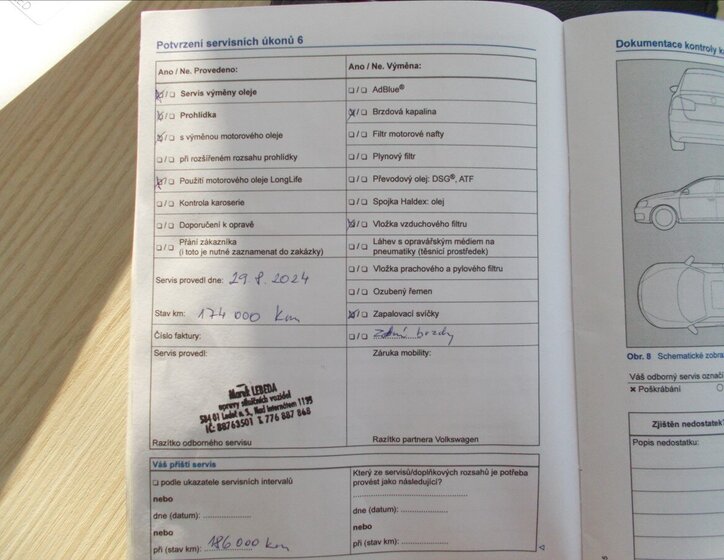 Potvrzení servisních úkonů 6
Ano / Ne. Provedeno:
☒/❏ Servis výměny oleje
☒/❏ Prohlídka
☒/❏ s výměnou motorového oleje
❏/❏ při rozšířeném rozsahu prohlídky
☒/❏ Použití motorového oleje LongLife
❏/❏ Kontrola karoserie
❏/❏ Doporučení k opravě
❏/❏ Přání zákazníka
(i toto je nutné zaznamenat do zakázky)
Servis provedl dne: 29.8.2024
Stav km: 174 000 km
Číslo faktury:
Servis provedl:
Marek LEBEDA
opravy silničních vozidel
584 01 Ledeč n. S., Nad Internátem 1195
IČ: 88763501 T. 776 887 868
Razítko odborného servisu
Ano / Ne. Výměna:
❏/❏ AdBlue®
☒/❏ Brzdová kapalina
❏/❏ Filtr motorové nafty
❏/❏ Plynový filtr
❏/❏ Převodový olej: DSG®, ATF
❏/❏ Spojka Haldex: olej
☒/❏ Vložka vzduchového filtru
❏/❏ Láhev s opravářským médiem na
pneumatiky (těsnicí prostředek)
❏/❏ Vložka prachového a pylového filtru
❏/❏ Ozubený řemen
☒/❏ Zapalovací svíčky
❏/❏ Zadní brzdy
Záruka mobility:
Razítko partnera Volkswagen
Váš příští servis
❏ podle ukazatele servisních intervalů
nebo
dne (datum): ....................
nebo
při (stav km): 186 000 km
Který ze servisů/doplňkových rozsahů je potřeba
provést jako následující?
dne (datum): ....................
nebo
při (stav km): ....................
Dokumentace kontroly k
Obr. 8 Schematické zobra
Váš odborný servis označí
× Poškrábání
Zjištěn nedostatek
Popis nedostatku: